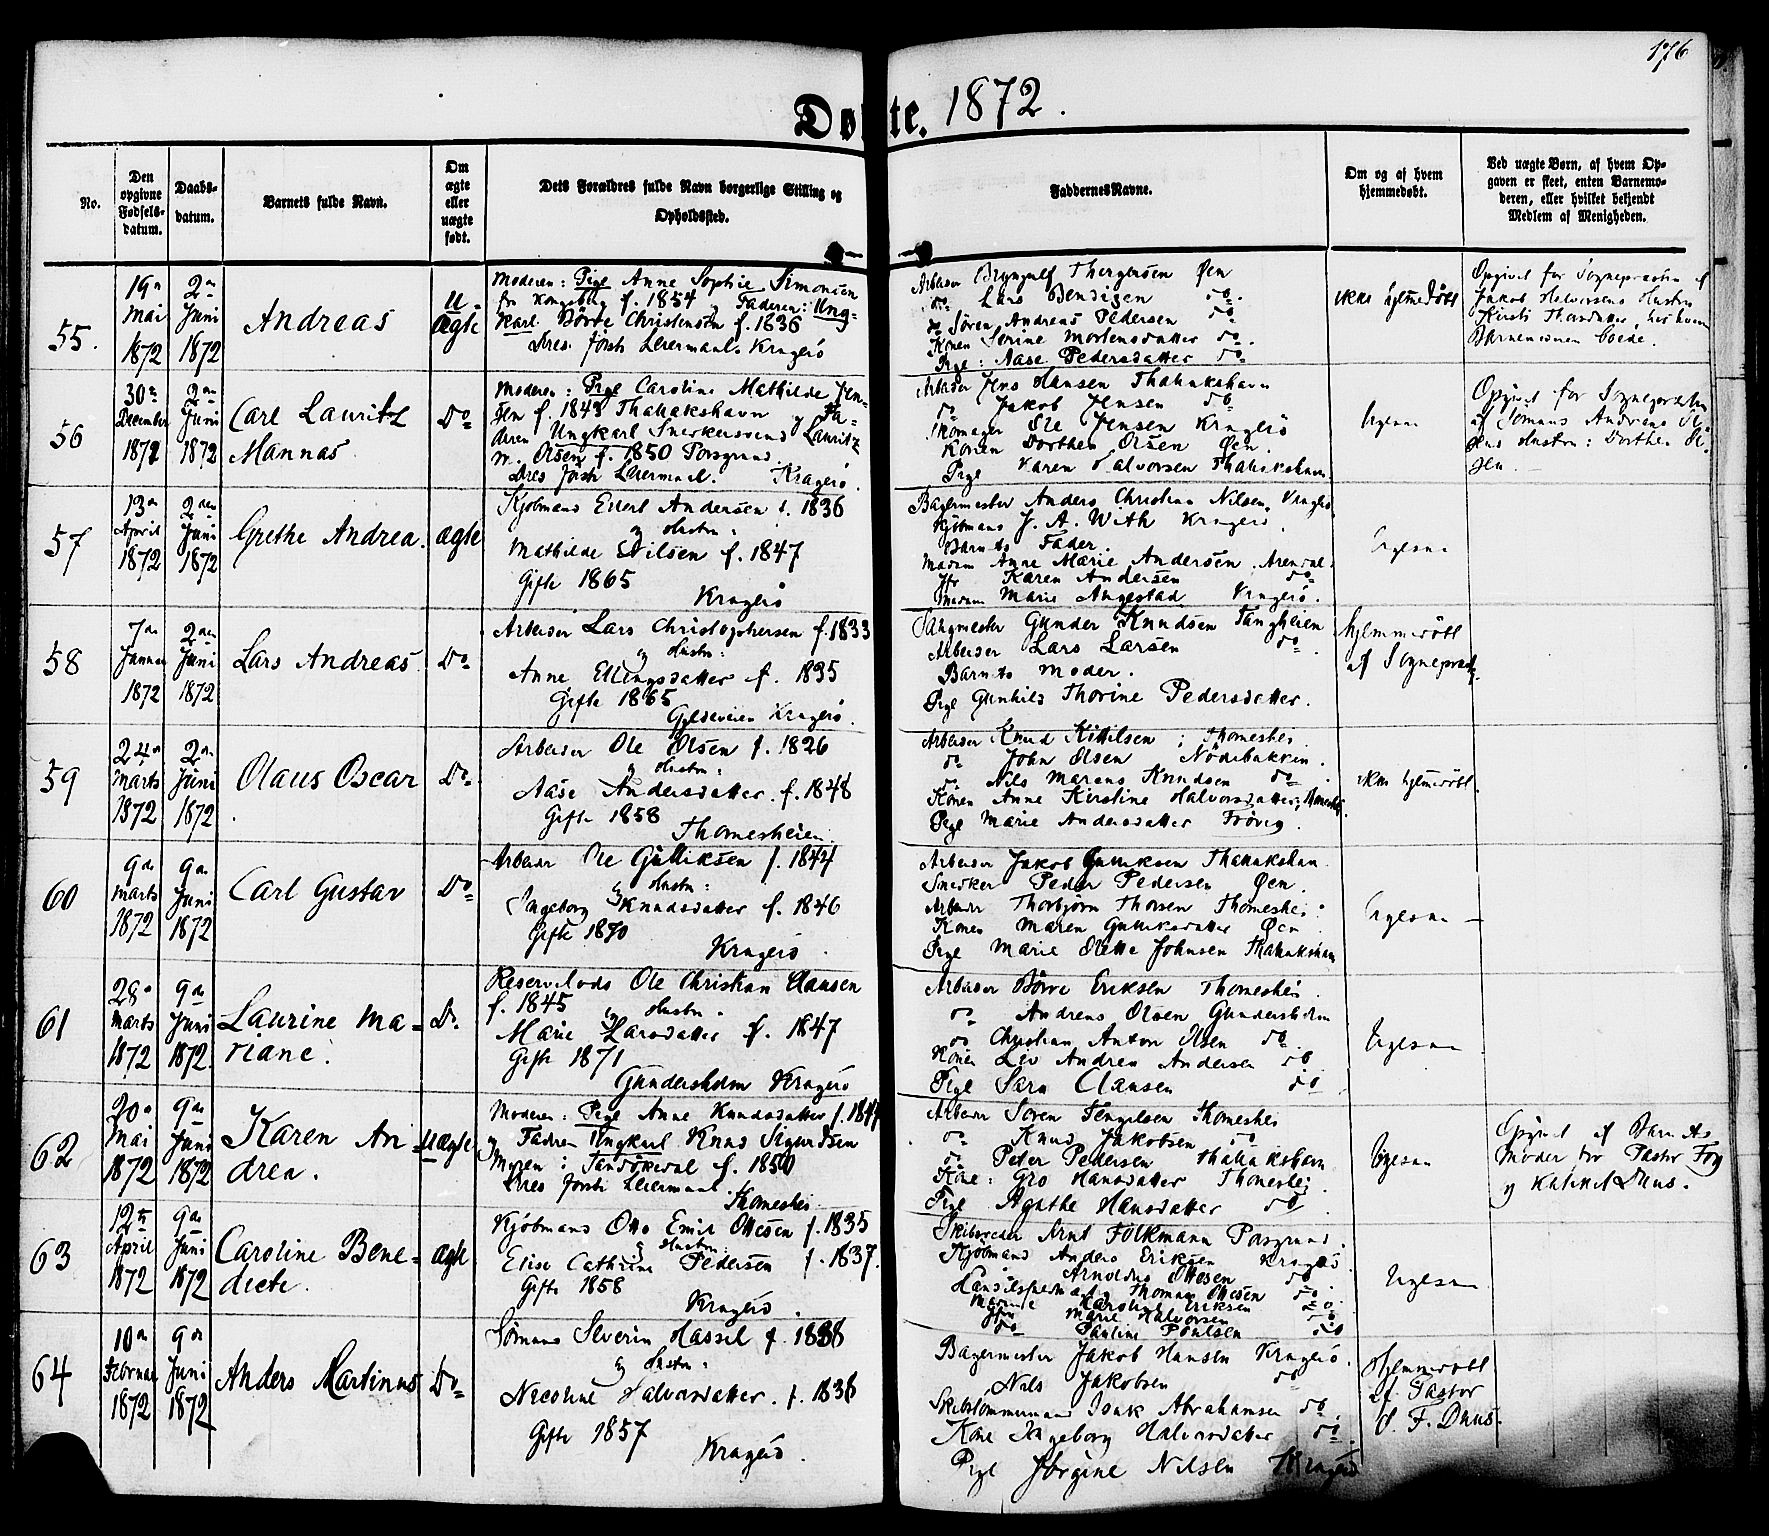 176
Døbte. 1872.
No.
Den opgivne Fødsels-datum.
Daabs-datum.
Barnets fulde Navn.
Om ægte eller uægte født.
Dets Forældres fulde Navn borgerlige Stilling og Opholdssted.
FaddernesNavne.
Om og af hvem hjemmedøbt.
Ved uægte Børn, af hvem Op-gaven er skeet, enten Barnemo-deren, eller hvilket bekjendt Medlem af Menigheden.
55.
19de Mai 1872
2den Juni 1872
Andreas
Uægte
Moderen: Pige Anne Sophie Simonsen
fra Kongsberg f. 1854 og Faderen: Ung-
karl Børre Christensen f. 1836
Deres første Leiermaal. Kragerø
Arbeider Bryngulf Thorgersen Øen
do Lars Bendixen do.
do Søren Andreas Pedersen do
Konen Serine Mortensdatter do.
Pige: Aase Pedersdatter do
ikke hjemmedøbt
Opgivet for Sognepræsten af
Jakob Halvorsens Hustru
Kirsti Thordatter, hos hvem
Barnemoren boede.
56
30te December 1871
2den Juni 1872
Carl Lauritz
Mannas
Do
Moderen: Pige Caroline Mathilde Jen-
sen f. 1848 Thalakshavn og Fa-
deren Ungkarl Snerkersvend Lauritz
W. Olsen f. 1850 Porsgrund
Deres første Leiermaal. Kragerø.
Arbeider Jens Hansen Thalakshavn
do Jakob Jensen do
Skomager Ole Jensen Kragerø
Konen Dorthea Olsen Øen.
Pige Karen Halvorsen Thalakshavn
Ligesaa
Opgivet for Sognepræsten
af Sømand Andreas Ol-
sens Hustru: Dorthea Ol-
sen.
57
13de April 1872
2den Juni 1872
Grethe Andrea.
ægte
Kjøbmand Edert Andersen f. 1836
og Hustru:
Mathilde Nilsen f. 1847
Gifte 1865
Kragerø
Bagermester Anders Christian Nilsen, Kragerø
Kjøbmand J. A. With Kragerø.
Barnets Fader.
Madam Anne Marie Andersen, Arendal.
Jfr Karen Andersen do
Madam Marie Angestad Kragerø.
Ligesaa
58
7de Januar 1872
2den Juni 1872
Lars Andreas
Do
Arbeider Lars Christophersen f. 1833
og Hustru:
Anne Ellingsdatter f. 1835
Gifte 1865
Gyldeveien Kragerø.
Sangmester Gunder Knudsen Tangheien
Arbeider Lars Larsen do.
Barnets Moder.
Pige Gunhild Thorine Pedersdatter.
hjemmedøbt
af Sognepræst.
59
24de Marts 1872
2den Juni 1872
Olaus Oscar
Do.
Arbeider Ole Olsen f. 1826
og Hustru:
Aase Andersdatter. f. 1848
Gifte 1858
Thomesheien
Arbeider Knud Kittilsen; Thomeshei
do John Olsen Nødebakken.
do Nils Marens Knudsen do
Konen Anne Kirstine Halvorsdatter, Thomeshei
Pige Marie Andersdatter Frøvig.
ikke hjemmedøbt.
60
9de Marts 1872
9de Juni 1872
Carl Gustav
Do
Arbeider Ole Gulliksen f. 1844
og Hustru:
Ingeborg Knudsdatter f. 1846
Gifte 1870
Kragerø.
Arbeider Jakob Gulliksen Thalakshavn
Snedker Peder Pedersen Øen.
Arbeider Thorbjørn Thorsen Thomeshei
Konen Maren Gulliksdatter Øen
Pige Marie Olette Johnsen Thalakshavn
Ligesaa
61
28de Marts 1872
9de Juni 1872.
Laurine Ma-
riane.
Do.
Reservelods Ole Christian Clausen
f. 1845 og Hustru.
Marie Larsdatter f. 1847
Gifte 1871
Gundersholm Kragerø
Arbeider Børre Eriksen Thomeshei
do Andreas Olsen Gundersholm
do Christian Anton Olsen do
Konen Lev Andrea Andersen do
Pige Sara Clausen do
Ligesaa
62
20de Mai 1872
9de Juni 1872
Karen An-
drea.
Uægte
Moderen: Pige Anne Knudsdatter f. 1847
og Fadren Ungkarl Knud Sigurdsen
Myren i Sandøkedal f. 1850
Deres første Leiermaal.
Thomeshei
Arbeider Søren Tengelsen Thomeshei
do Knud Jakobsen do
do Peter Pedersen Thalakshavn
Kone: Gro Hansdatter Thomeshei
Pige Agathe Hansdatter do
Ligesaa
Opgivet af Barnets
Moder for Pastor Fog
og Kateket Duus.
63
12te April 1872
9de Juni 1872
Caroline Bene-
dicte.
ægte
Kjøbmand Otto Emil Ottesen f. 1835
og Hustru:
Elise Cathrine Pedersen f. 1837.
Gifte 1858
Kragerø.
Skibsreder Arnt Folkmann Porsgrund.
Kjøbmand Anders Eriksen Kragerø
Arnoldus Ottesen do
Handelsfuldmægtig Thomas Ottesen do
Madame Karoline Eriksen do
Jfr Marie Halvorsen do
do Pauline Poulsen do
Ligesaa
64
10de Februar 1872
9de Juni 1872
Anders Martinus
Do
Sømand Severin Hassel f. 1838
og Hustru:
Nicoline Halvorsdatter. f. 1836
Gifte 1857
Kragerø.
Bagermester Jakob Hansen Kragerø.
Nils Jakobsen do
Skibstømmermand Isak Abrahamsen do
Kone Ingeborg Halvorsdatter do.
Pige Jørgine Nilsen Kragerø
Hjemmedøbt
af Pastor
J. F. Duus.